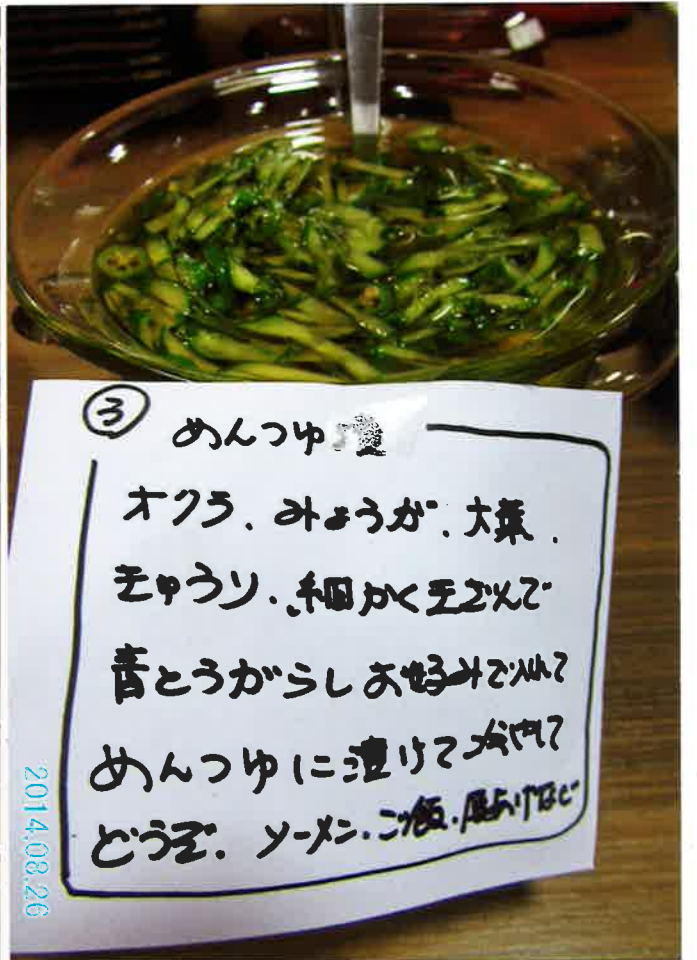 ③ めんつゆ漬
オクラ、みょうが、大葉、
きゅうり、細かくきざんで
青とうがらしお好みで入れて
めんつゆに漬けて冷やして
どうぞ。ソーメン、ご飯、厚あげなど
2014.08.26